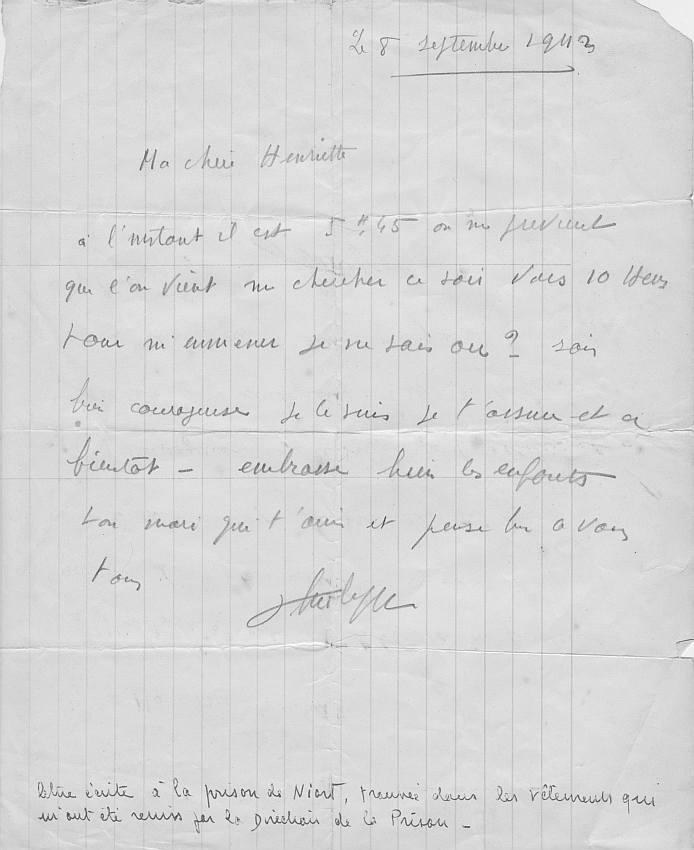 Le 8 septembre 1943
Ma chere Henriette
à l'instant il est 5 H 45 on me previent
que l'on vient me chercher ce soir vers 10 Heures
pour m'emmener je ne sais ou ? sois
bien courageuse je le suis je t'assure et a
bientôt - embrasse bien les enfants
ton mari qui t'aime et pense bien a vous
tous
Philippe
lettre écrite à la prison de Niort, trouvée dans les vêtements qui
m'ont été remis par la Direction de la Prison -